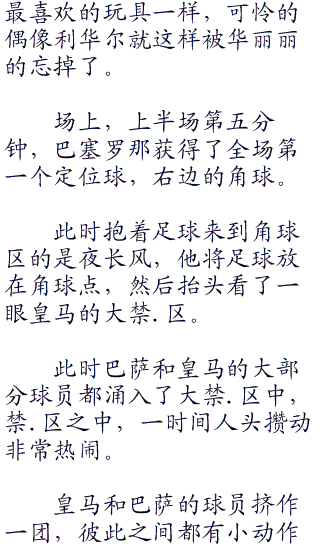 最喜欢的玩具一样，可怜的
偶像利华尔就这样被华丽丽
的忘掉了。
场上，上半场第五分
钟，巴塞罗那获得了全场第
一个定位球，右边的角球。
此时抱着足球来到角球
区的是夜长风，他将足球放
在角球点，然后抬头看了一
眼皇马的大禁.区。
此时巴萨和皇马的大部
分球员都涌入了大禁.区中，
禁.区之中，一时间人头攒动
非常热闹。
皇马和巴萨的球员挤作
一团，彼此之间都有小动作